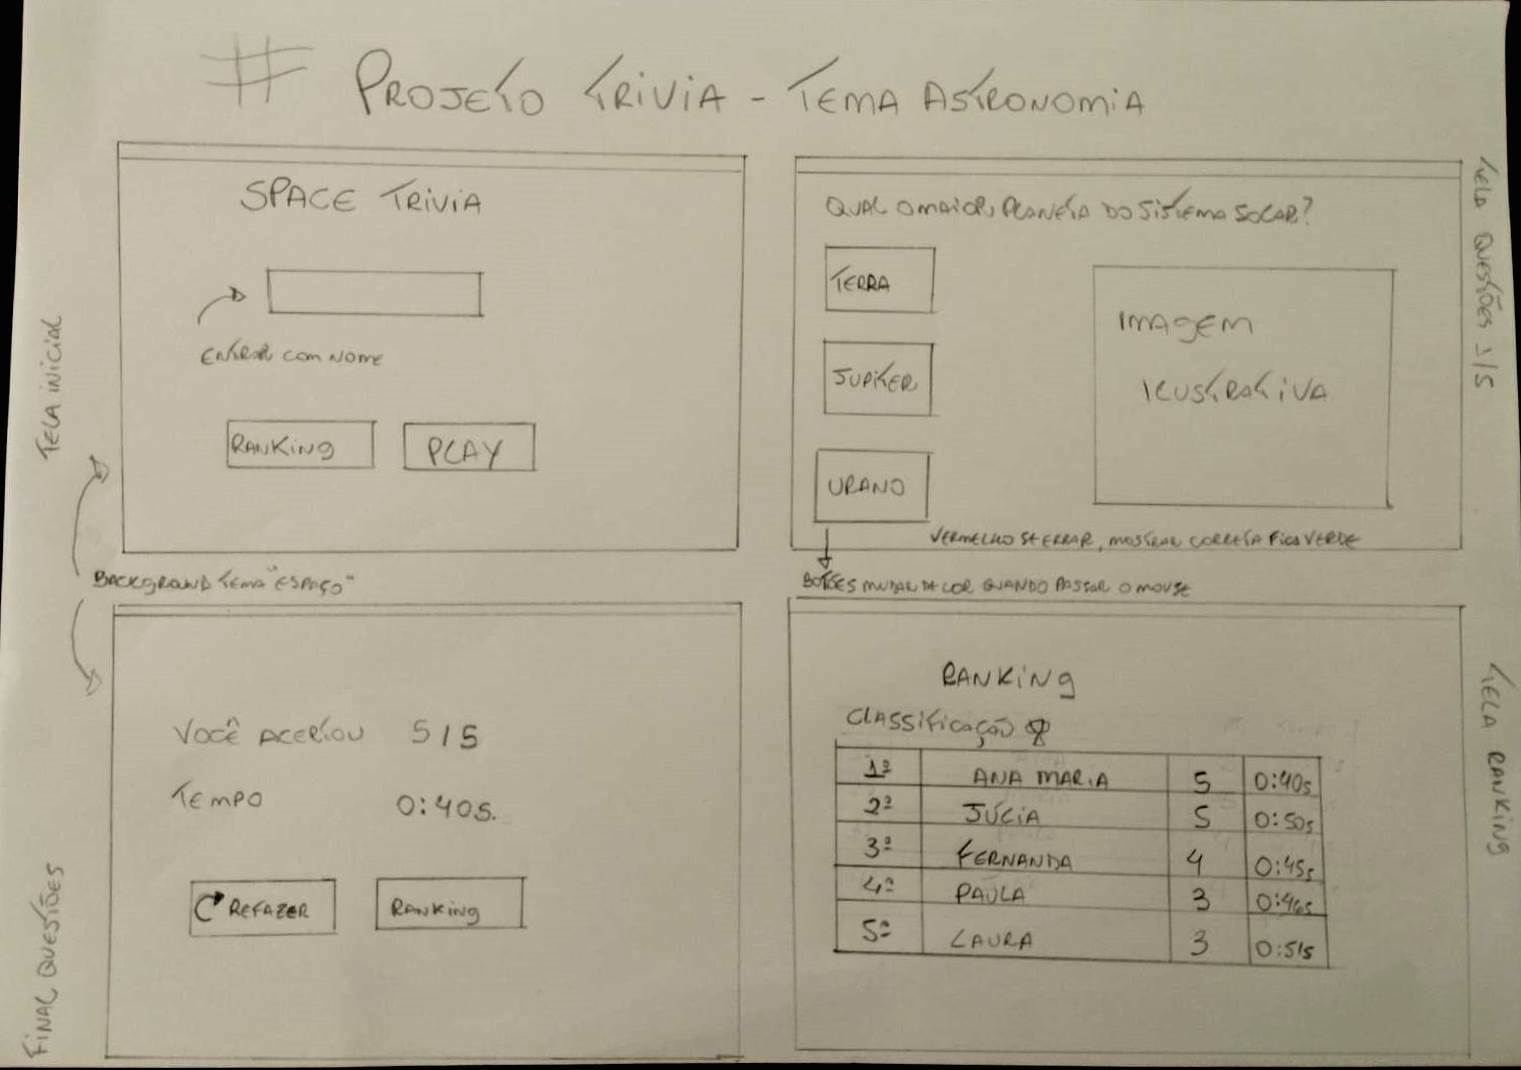 # PROJETO TRIVIA - TEMA ASTRONOMIA
TELA INICIAL
SPACE TRIVIA
ENTRAR COM NOME
RANKING
PLAY
BACKGROUND TEMA "ESPAÇO"
TELA QUESTÕES 1/5
QUAL O MAIOR PLANETA DO SISTEMA SOLAR?
TERRA
JUPITER
URANO
IMAGEM
ILUSTRATIVA
VERMELHO SE ERRAR, MOSTRAR CORRETA FICA VERDE
BOTÕES MUDAR DE COR QUANDO PASSAR O MOUSE
FINAL QUESTÕES
VOCÊ ACERTOU 5/5
TEMPO 0:40s.
REFAZER
RANKING
TELA RANKING
RANKING
CLASSIFICAÇÃO
1º ANA MARIA 5 0:40s
2º JÚLIA 5 0:50s
3º FERNANDA 4 0:45s
4º PAULA 3 0:46s
5º LAURA 3 0:51s